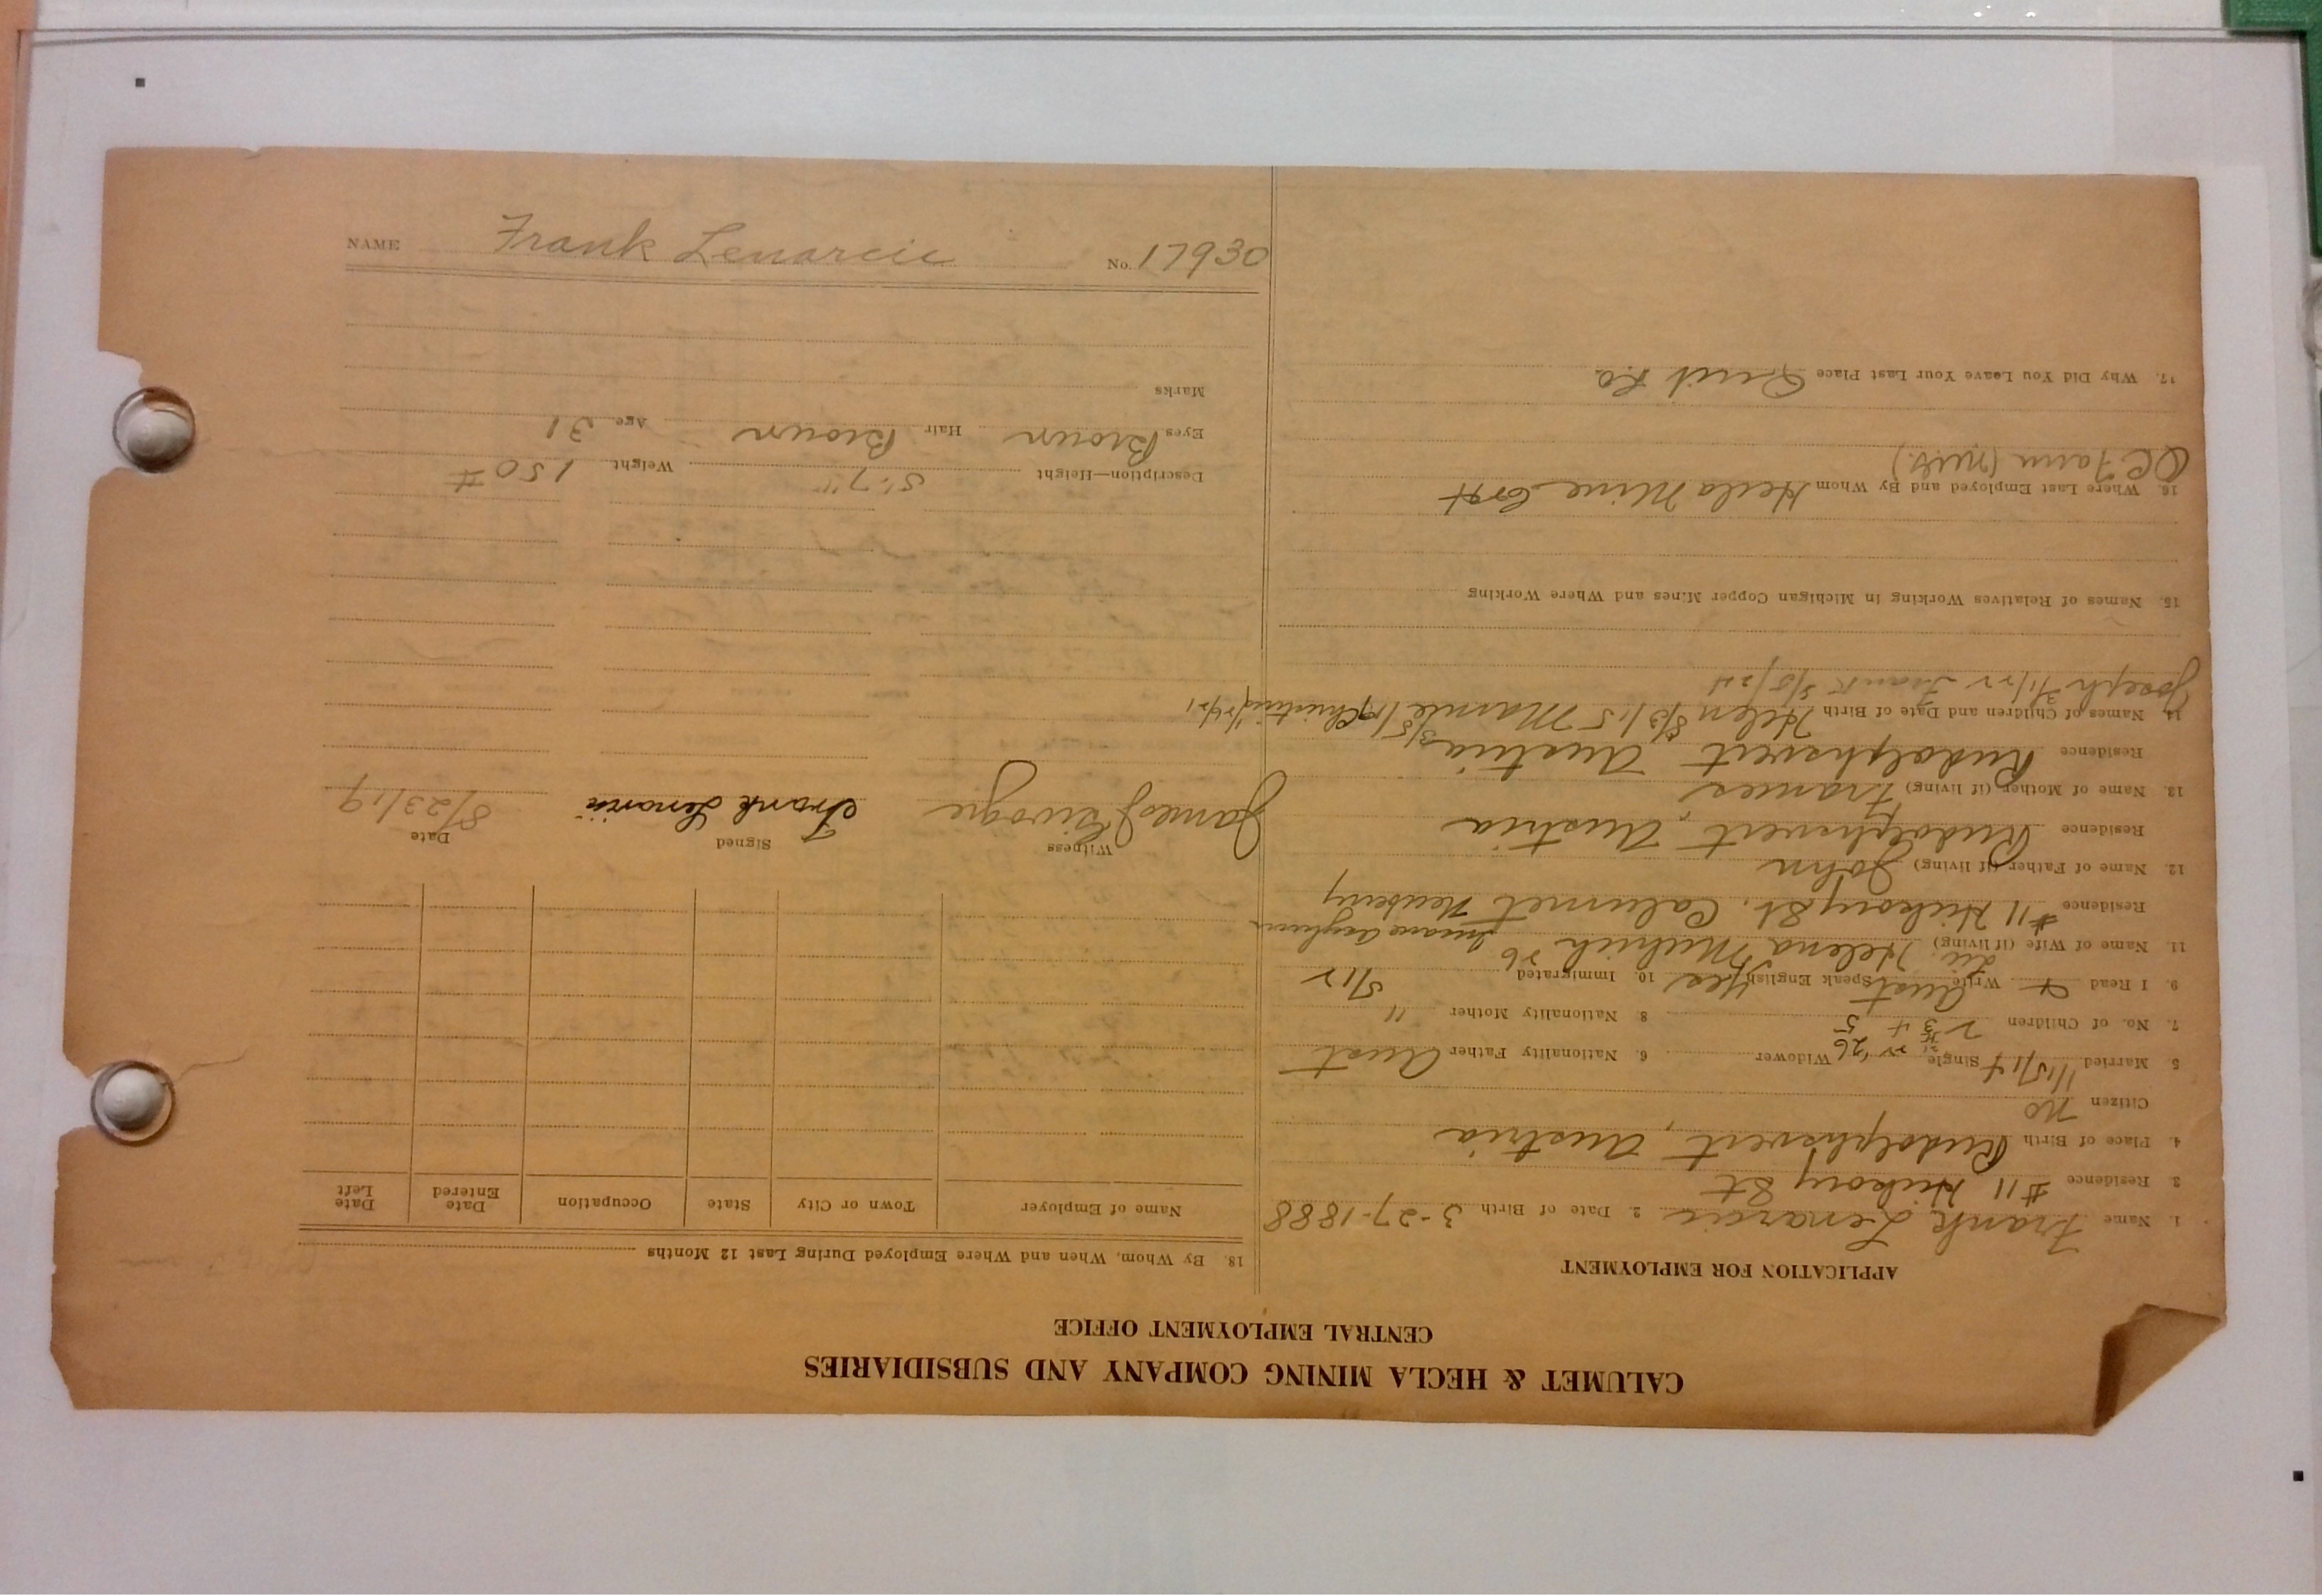 CALUMET & HECLA MINING COMPANY AND SUBSIDIARIES
CENTRAL EMPLOYMENT OFFICE
APPLICATION FOR EMPLOYMENT
1. Name Frank Lenarcic 2. Date of Birth 3-27-1888
3. Residence #11 Hickory St
4. Place of Birth Rudolphsvert, Austria
Citizen no
5. Married 11/15/14 Single Widower 6. Nationality Father Aust
7. No. of Children 2 3 4 5 8. Nationality Mother "
9. I Read & Write Aust Speak English Yes 10. Immigrated 5/12
11. Name of Wife (if living) Helena Insane Asylum
Residence #11 Hickory St. Calumet Newberry
12. Name of Father (if living) John
Residence Rudolphsvert, Austria
13. Name of Mother (if living) Frances
Residence Rudolphsvert Austria
14. Names of Children and Date of Birth Helen 8/3/15 Mamie
Joseph Frank
15. Names of Relatives Working in Michigan Copper Mines and Where Working
16. Where Last Employed and By Whom Hecla Mine
17. Why Did You Leave Your Last Place Quit
18. By Whom, When and Where Employed During Last 12 Months
Name of Employer Town or City State Occupation Date Entered Date Left
Witness Signed Date
James Frank Lenarcic 8/23/19
Description—Height 5'-7" Weight 150#
Eyes Brown Hair Brown Age 31
Marks
NAME Frank Lenarcic No. 17930